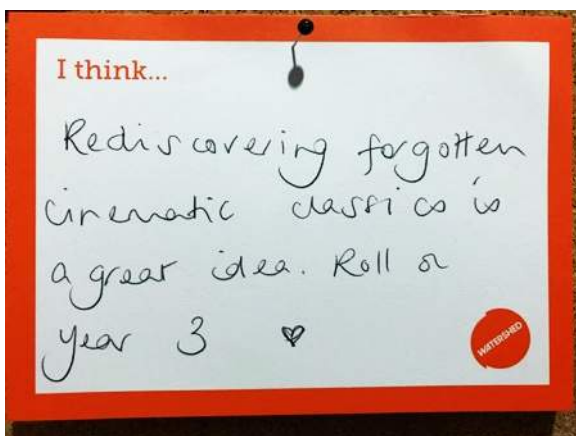 I think...
Rediscovering forgotten
cinematic classics is
a great idea. Roll on
year 3 ♥
WATERSHED